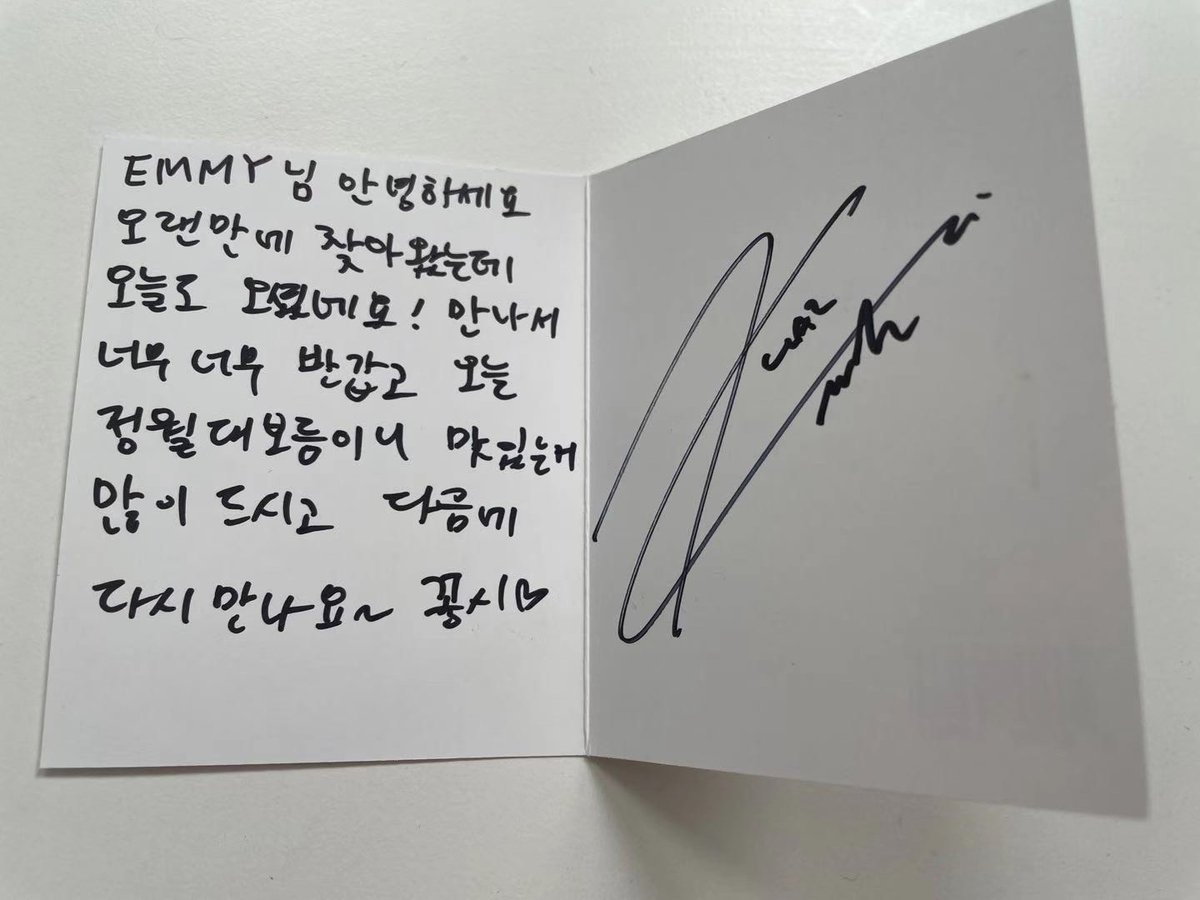 EMMY님 안녕하세요
오랜만에 찾아왔는데
오늘도 오셨네요! 만나서
너무 너무 반갑고 오늘
정월대보름이니 맛있는거
많이 드시고 다음에
다시 만나요~ 꽃시♡